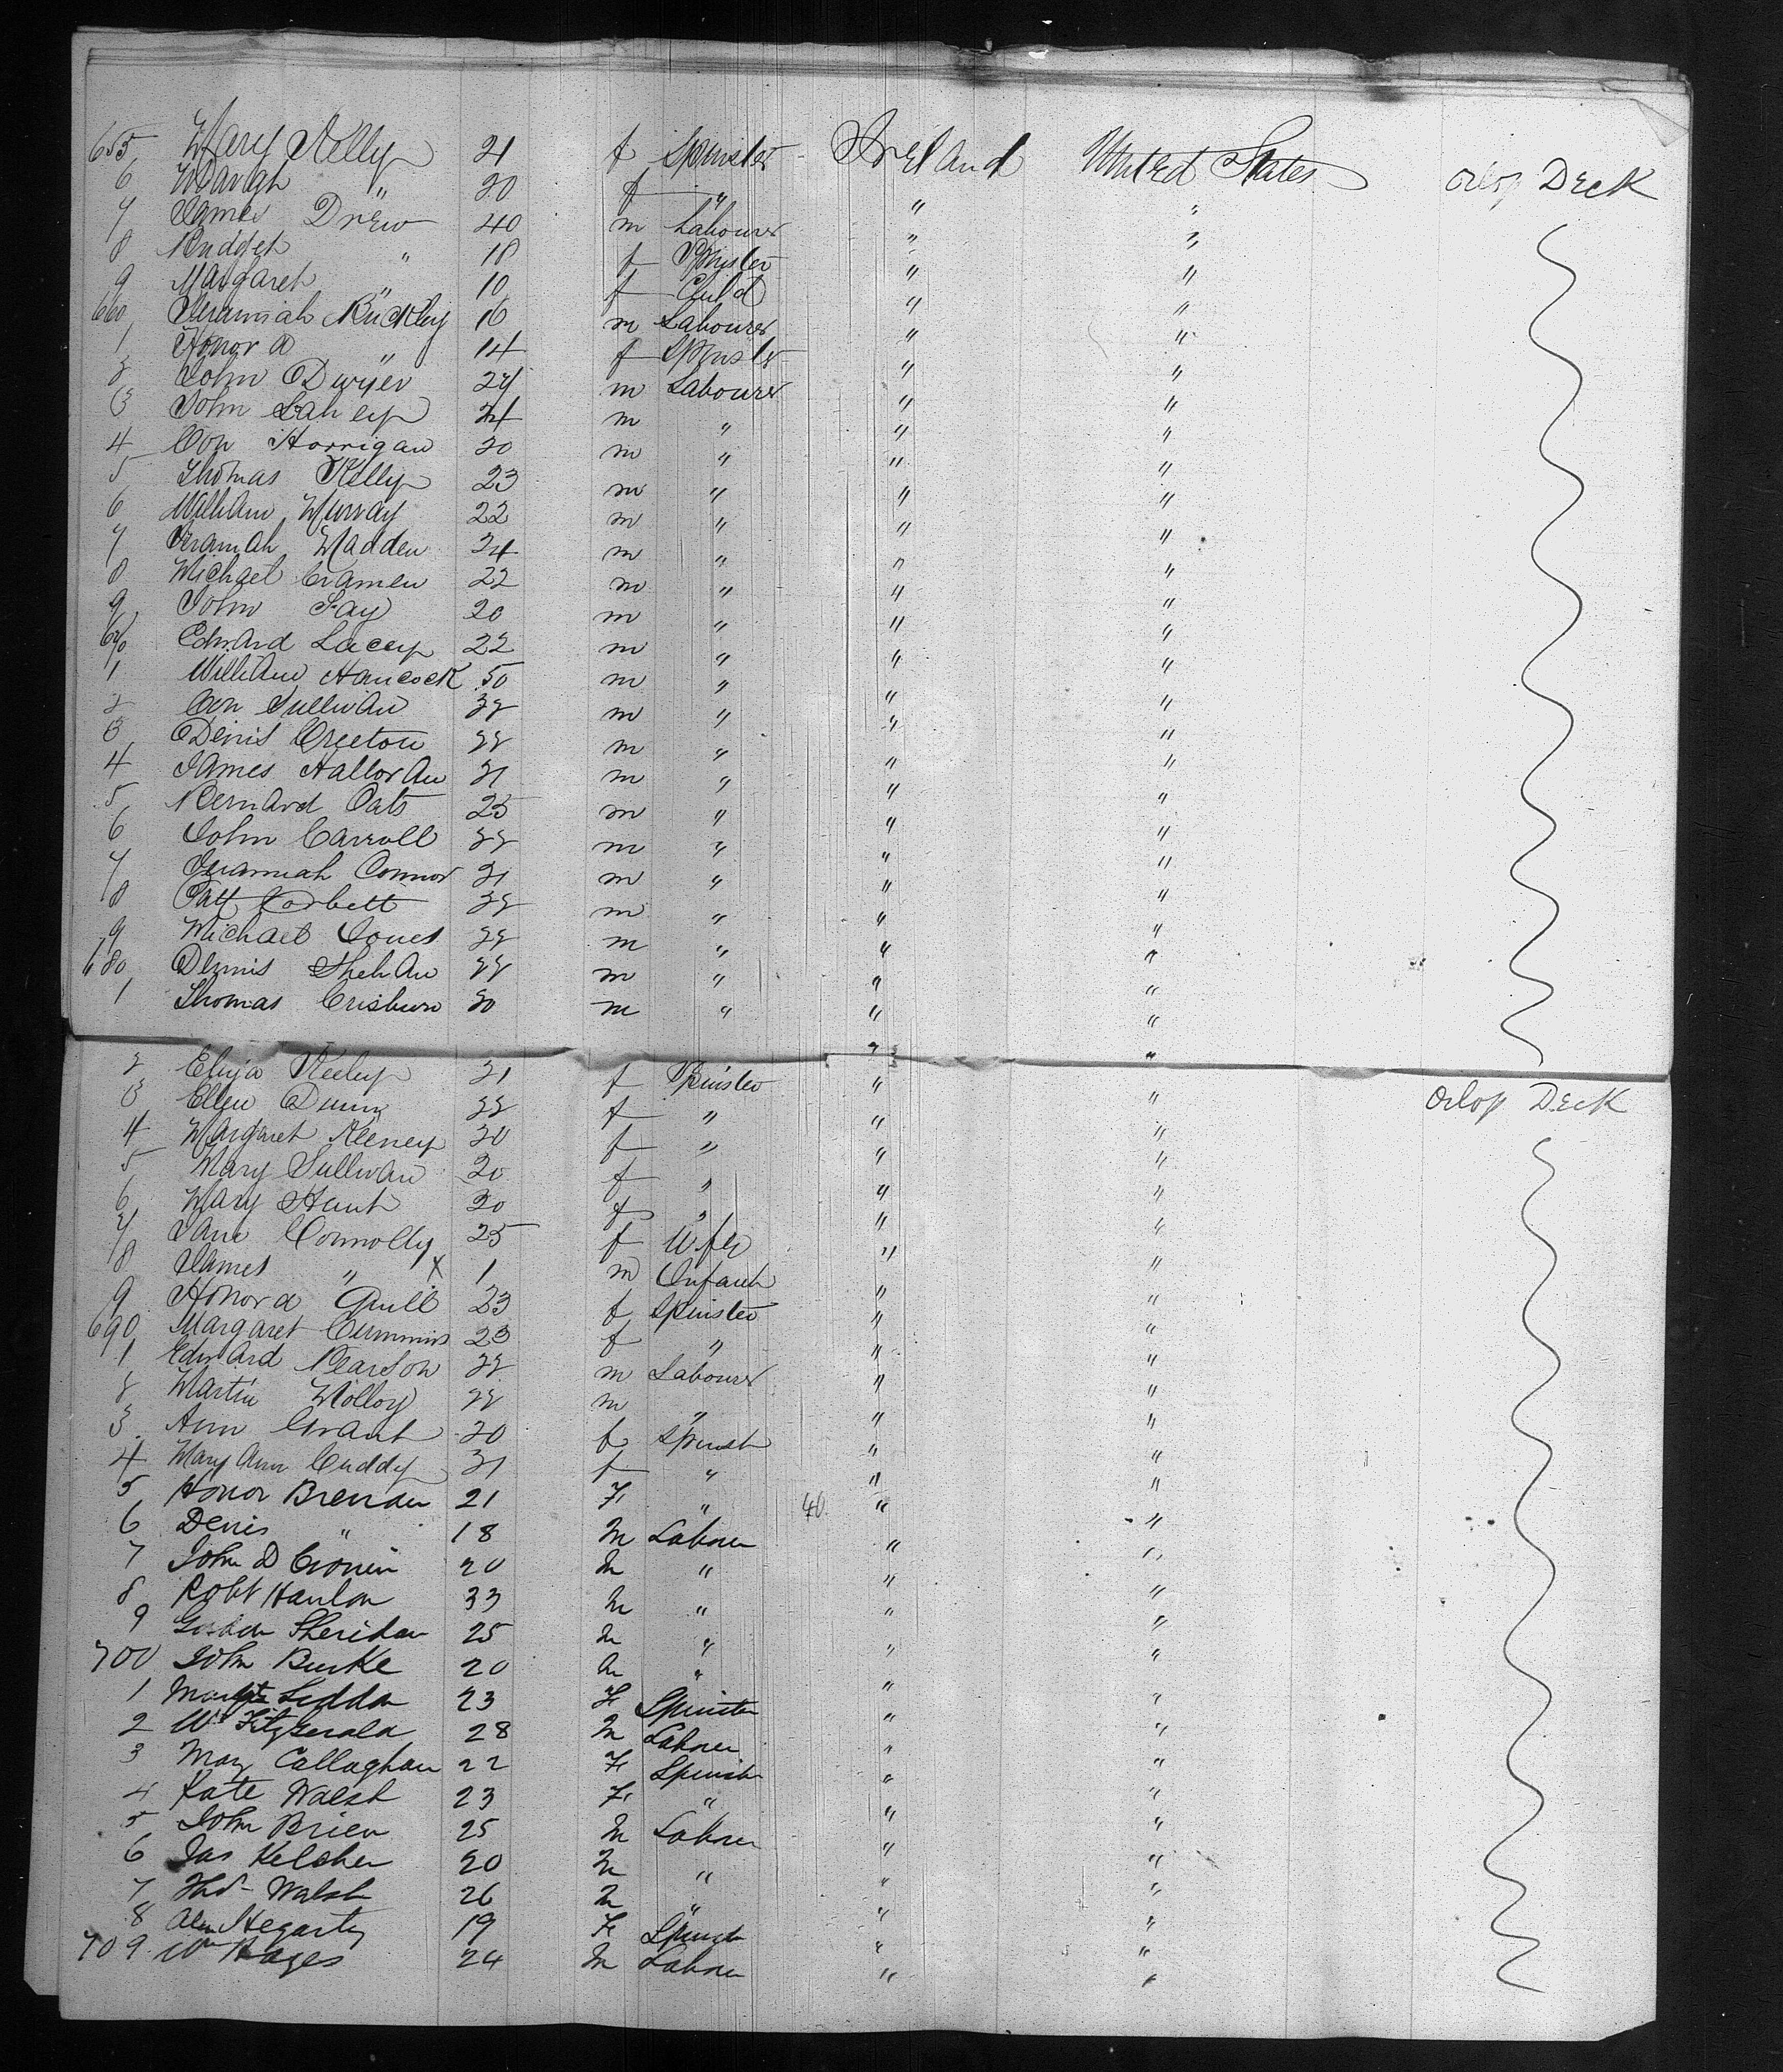 655 Mary Kelly 21 f Spinster Ireland United States Orlop Deck
6 " 20 f " " "
7 James Drew 40 m Labourer " "
8 Bridget " 18 f Spinster " "
9 Margaret " 10 f Child " "
660 Jeremiah Buckley 16 m Labourer " "
1 Honora " 14 f Spinster " "
2 John Dwyer 24 m Labourer " "
3 John Lahey 21 m " " "
4 Con Horrigan 20 m " " "
5 Thomas Kelly 23 m " " "
6 William Murray 22 m " " "
7 Jeramiah Madden 24 m " " "
8 Michael Cramen 22 m " " "
9 John Fay 20 m " " "
670 Edward Lacey 22 m " " "
1 William Hancock 50 m " " "
2 Con Sullivan 32 m " " "
3 Denis Creeton 22 m " " "
4 James Halloran 21 m " " "
5 Bernard Oats 25 m " " "
6 John Carroll 22 m " " "
7 Jeramiah Connor 21 m " " "
8 Patt Corbett 32 m " " "
9 Michael Jones 22 m " " "
680 Dennis Shehan 22 m " " "
1 Thomas Crisburn 20 m " " "
" "
2 Eliza Keeley 21 f Spinster " " Orlop Deck
3 Ellen Dunn 22 f " " "
4 Margaret Keeney 20 f " " "
5 Mary Sullivan 20 f " " "
6 Mary Hunt 20 f " " "
7 Jane Connolly 25 f Wife " "
8 James " x 1 m Infant " "
9 Honora Quill 23 f Spinster " "
690 Margaret Cummins 23 f " " "
1 Edward Pearson 22 m Labourer " "
2 Martin Molloy 22 m " " "
3 Ann Grant 20 f Spinst " "
4 Mary Ann Cuddy 21 f " " "
5 Honor Brenan 21 F " 40 " "
6 Denis " 18 M Labrer " "
7 John D Cronin 20 M " " "
8 Robt Hanlon 33 M " " "
9 Sheridan 25 M " " "
700 John Burke 20 M " " "
1 Margt Leddon 23 F Spinster " "
2 Wm Fitzgerald 28 M Labrer " "
3 Mary Callaghan 22 F Spinster " "
4 Kate Walsh 23 F " " "
5 John Brien 25 M Labrer " "
6 Jas Keleher 20 M " " "
7 Walsh 26 M " " "
8 Hegarty 19 F Spinst " "
709 Wm 24 M Labrer " "